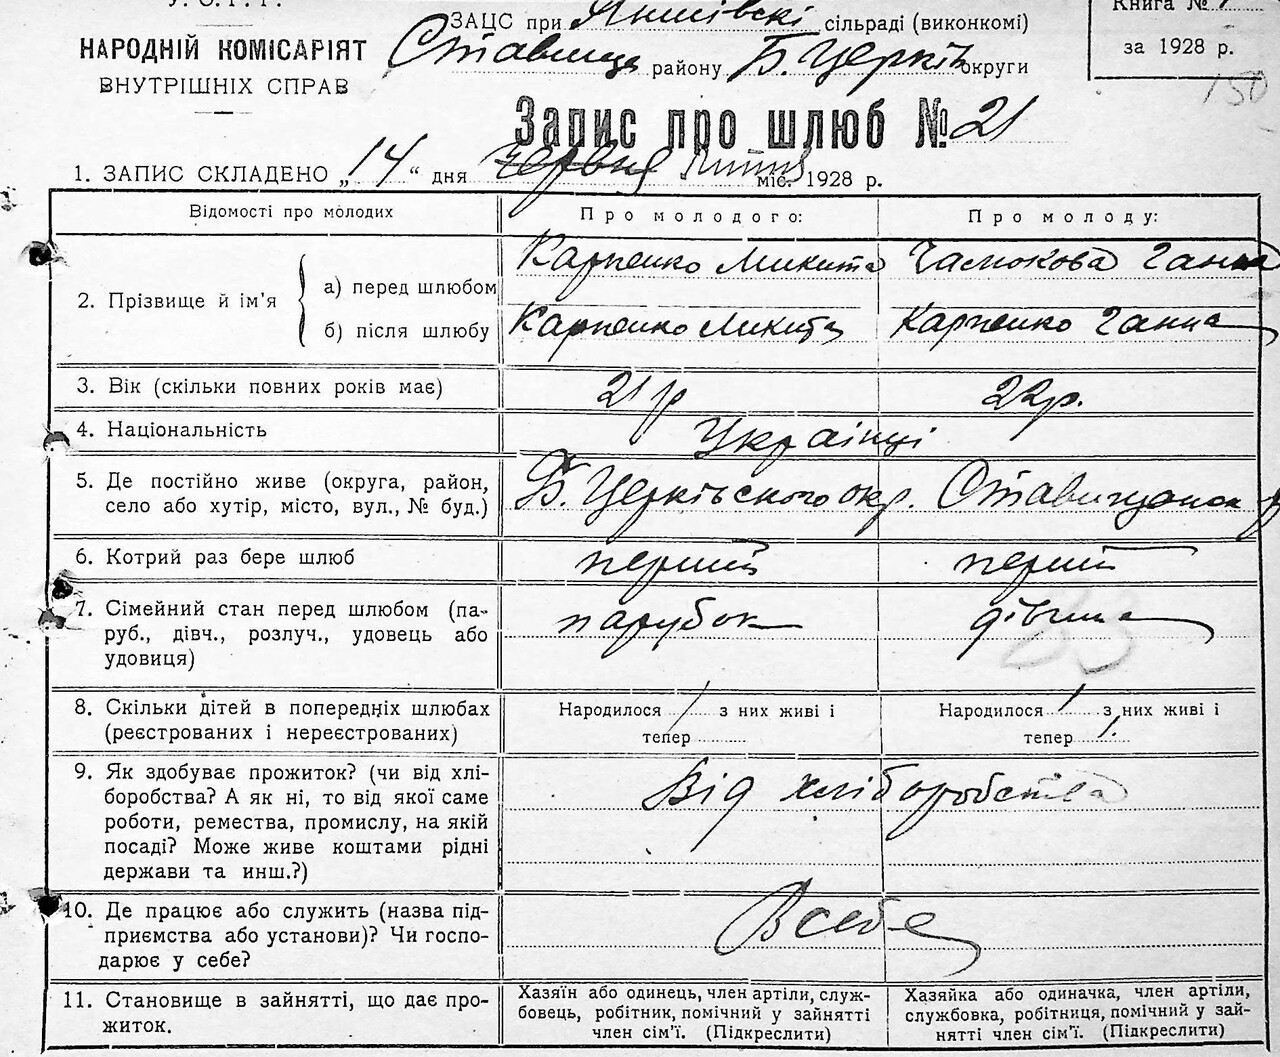 У. С. Р. Р.
НАРОДНІЙ КОМІСАРІЯТ
ВНУТРІШНІХ СПРАВ
ЗАЦС при Янишівскі сільраді (виконкомі)
Ставище району Б. Церків округи
Книга №
за 1928 р.
150
Запис про шлюб № 21
1. ЗАПИС СКЛАДЕНО „14“ дня червня Липня міс. 1928 р.
Відомості про молодих
Про молодого:
Про молоду:
2. Прізвище й ім'я
а) перед шлюбом
Карпенко Микита
Ганна
б) після шлюбу
Карпенко Микита
Карпенко Ганна
3. Вік (скільки повних років має)
21 р
22 р.
4. Національність
Українці
5. Де постійно живе (округа, район,
село або хутір, місто, вул., № буд.)
Б. Церківського окр. Ставищанськ р
6. Котрий раз бере шлюб
перший
перший
7. Сімейний стан перед шлюбом (па-
руб., дівч., розлуч., удовець або
удовиця)
парубок
дівчина
8. Скільки дітей в попередніх шлюбах
(реєстрованих і нереєстрованих)
Народилося / з них живі і
тепер
Народилося 1 з них живі і
тепер 1.
9. Як здобуває прожиток? (чи від хлі-
боробства? А як ні, то від якої саме
роботи, ремества, промислу, на якій
посаді? Може живе коштами рідні
держави та инш.?)
Від хліборобства
10. Де працює або служить (назва під-
приємства або установи)? Чи госпо-
дарює у себе?
В себе
11. Становище в зайнятті, що дає про-
житок.
Хазяїн або одинець, член артілі, служ-
бовець, робітник, помічний у зайнятті
член сім'ї. (Підкреслити)
Хазяйка або одиначка, член артілі,
службовка, робітниця, помічний у зай-
нятті член сім'ї. (Підкреслити)